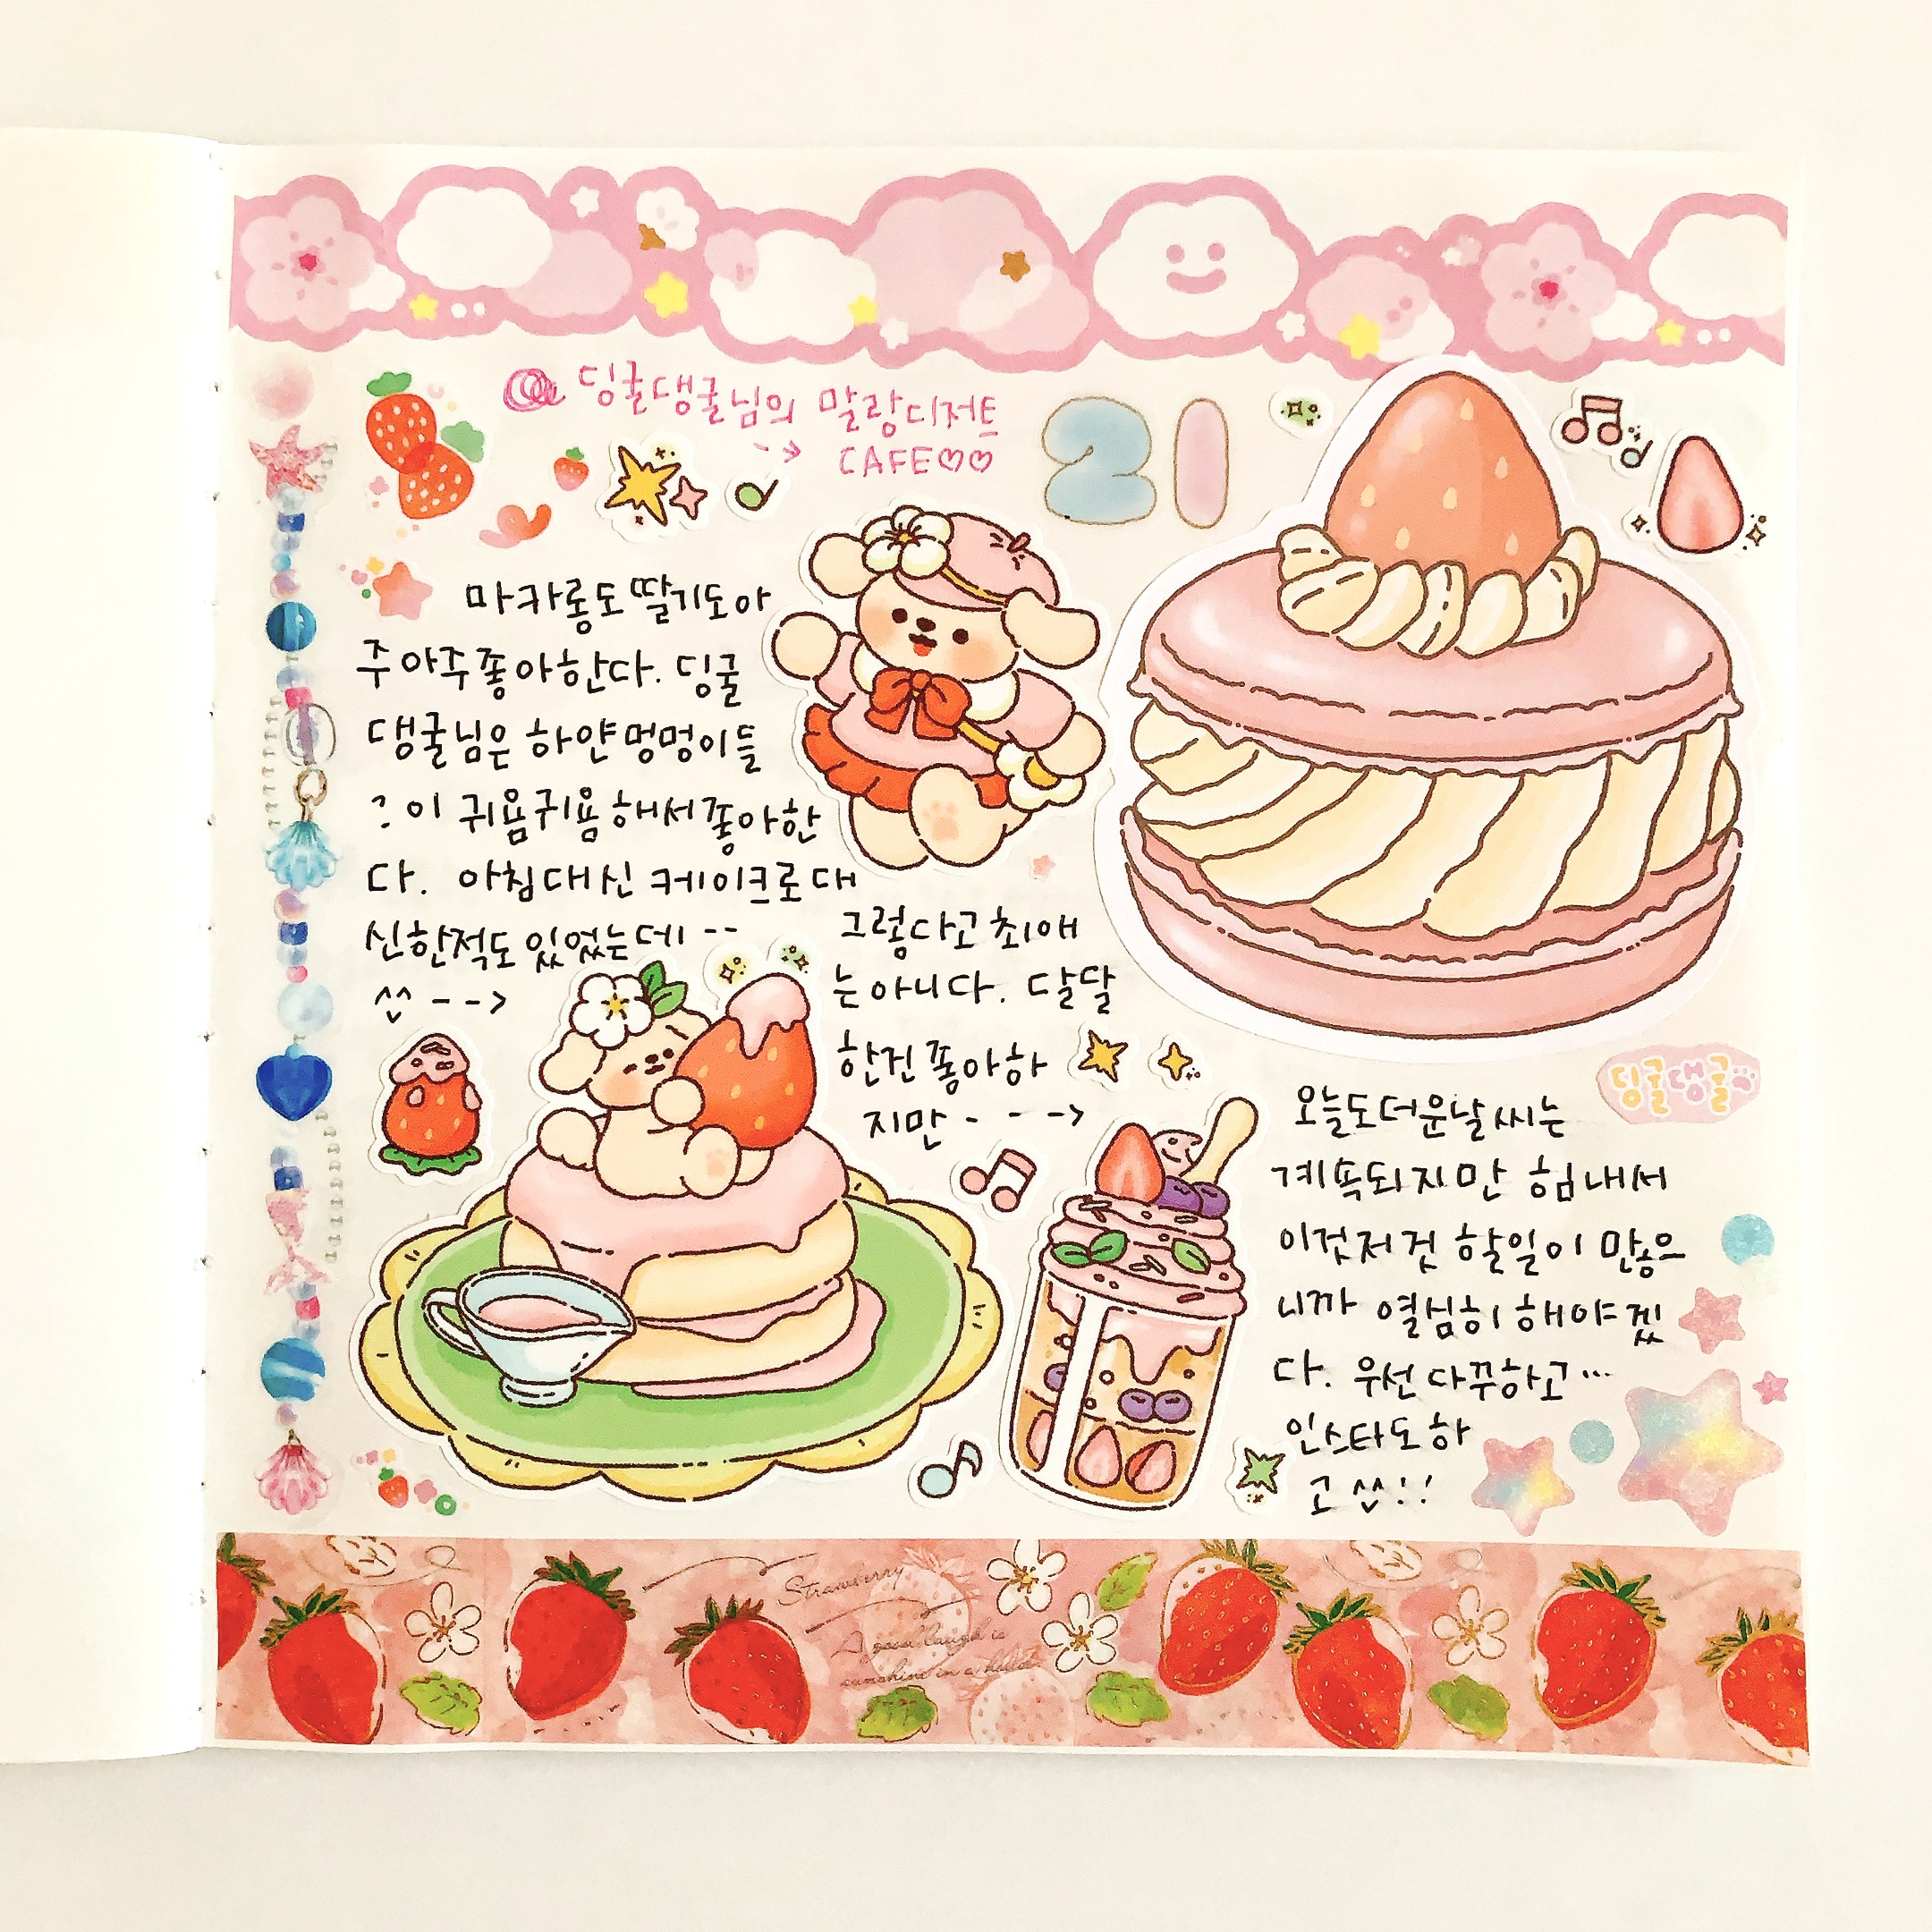 딩굴댕굴님의 말랑디저트
--> CAFE♡♡
21
마카롱도 딸기도 아
주 아주 좋아한다. 딩굴
댕굴님은 하얀 멍멍이들
:이 귀욤귀욤해서 좋아한
다. 아침대신 케이크로 대
신한적도 있었는데 --
^^ -->
그렇다고 최애
는 아니다. 달달
한건 좋아하
지만 - - ->
딩굴댕굴
오늘도 더운 날씨는
계속되지만 힘내서
이것저것 할일이 많으
니까 열심히 해야겠
다. 우선 다꾸하고...
인스타도 하
고 ^^!!
Strawberry
A good laugh is
sunshine in a house